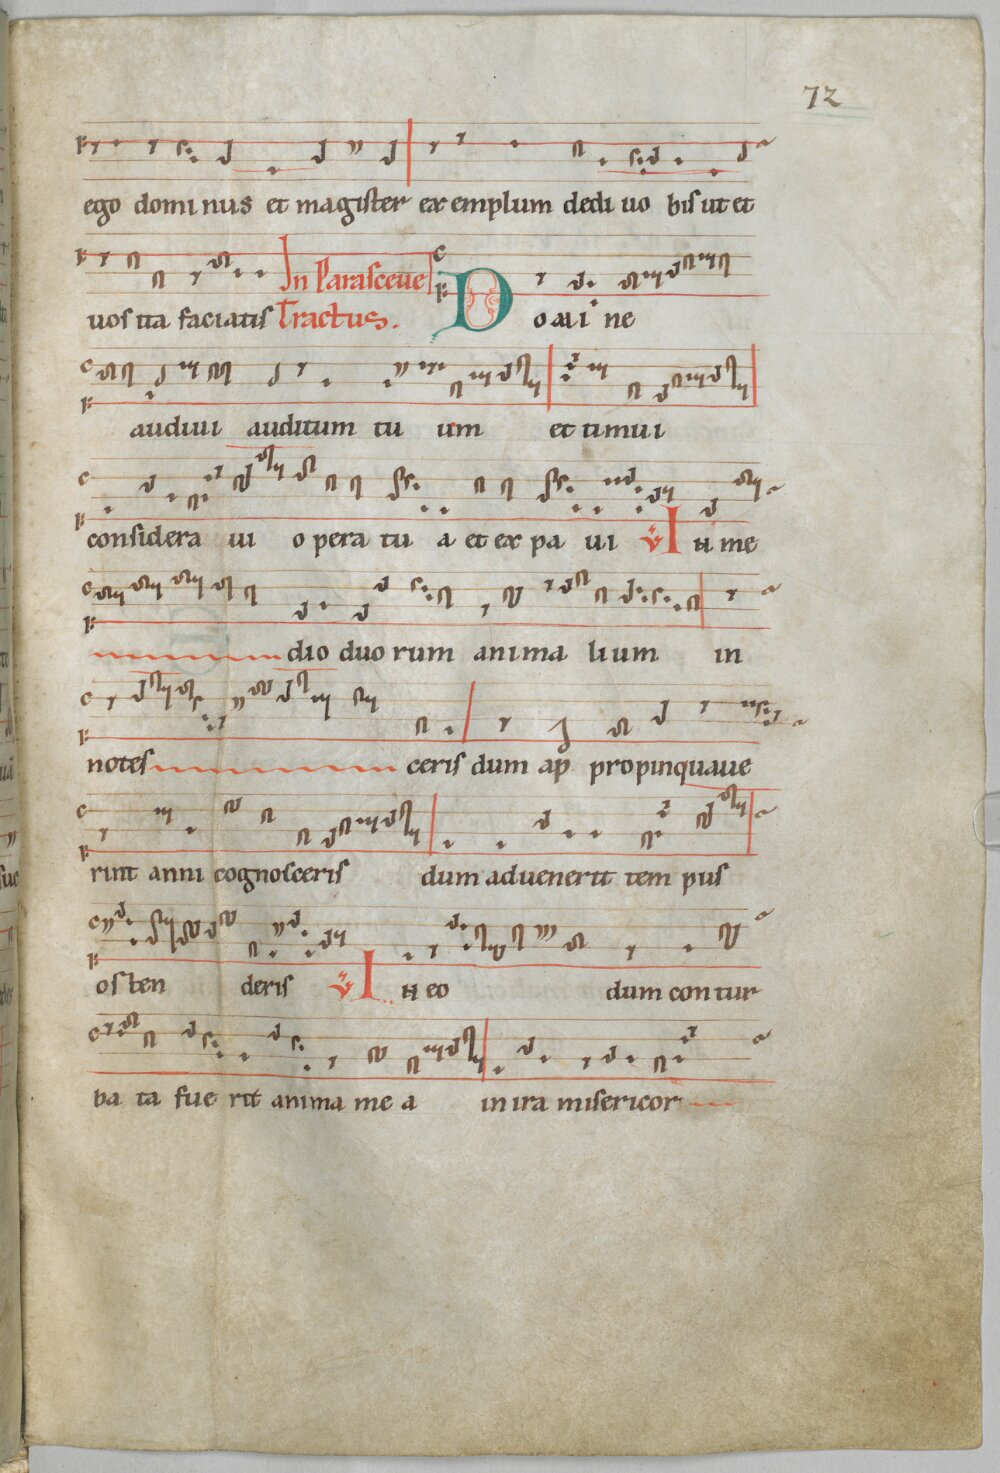 72
ego domi nus et magister ex emplum dedi uo bis ut et
uos ita faciatis In Parasceue
Tractus. Domi ne
audiui auditum tu um et timui
considera ui o pera tu a et ex pa ui V In me
dio duo rum anima lium in
notes ceris dum ap propinquaue
rint anni cognosceris dum aduenerit tem pus
osten deris V In eo dum con tur
ba ta fue rit anima me a in ira misericor